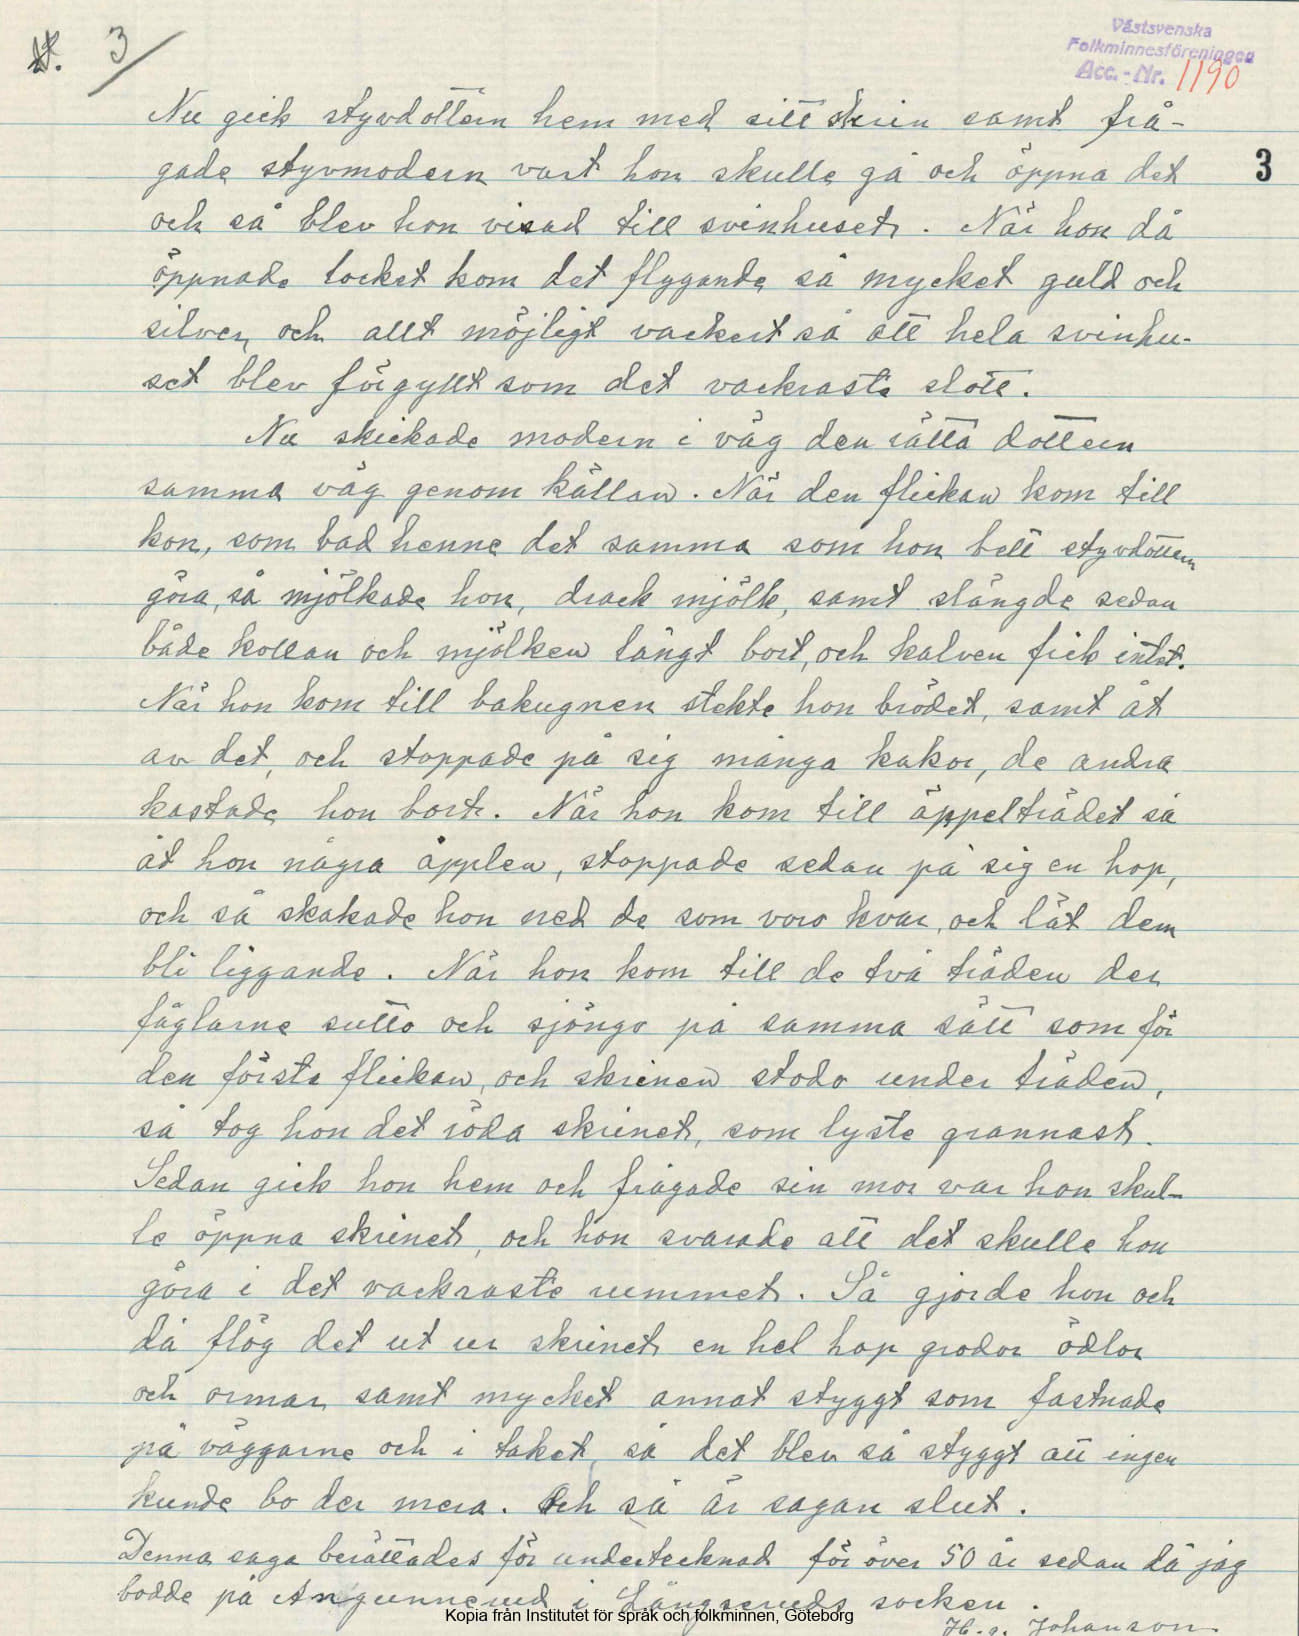 3
Västsvenska
Folkminnesföreningen
Acc.-Nr. 1190
Nu gick styvdottern hem med sitt skrin samt frå-
gade styvmodern vart hon skulle gå och öppna det
3
och så blev hon visad till svinhuset. När hon då
öppnade locket kom det flygande så mycket guld och
silver, och allt möjligt vackert så att hela svinhu-
set blev förgyllt som det vackraste slott.
Nu skickade modern i väg den rätta dottern
samma väg genom källan. När den flickan kom till
kon, som bad henne det samma som hon bett styvdottern
göra, så mjölkade hon, drack mjölk, samt slängde sedan
både kollan och mjölken långt bort, och kalven fick intet.
När hon kom till bakugnen stekte hon brödet, samt åt
av det, och stoppade på sig många kakor, de andra
kastade hon bort. När hon kom till äppelträdet så
åt hon några äpplen, stoppade sedan på sig en hop,
och så skakade hon ned de som voro kvar, och lät dem
bli liggande. När hon kom till de två träden der
fåglarne sutto och sjöngo på samma sätt som för
den första flickan, och skrinen stodo under träden,
så tog hon det röda skrinet, som lyste grannast.
Sedan gick hon hem och frågade sin mor var hon skul-
le öppna skrinet, och hon svarade att det skulle hon
göra i det vackraste rummet. Så gjorde hon och
då flög det ut ur skrinet en hel hop grodor ödlor
och ormar samt mycket annat styggt som fastnade
på väggarne och i taket, så det blev så styggt att ingen
kunde bo der mera. Och så är sagan slut.
Denna saga berättades för undertecknad för över 50 år sedan då jag
bodde på i Långseruds socken.
Kopia från Institutet för språk och folkminnen, Göteborg
Johanson